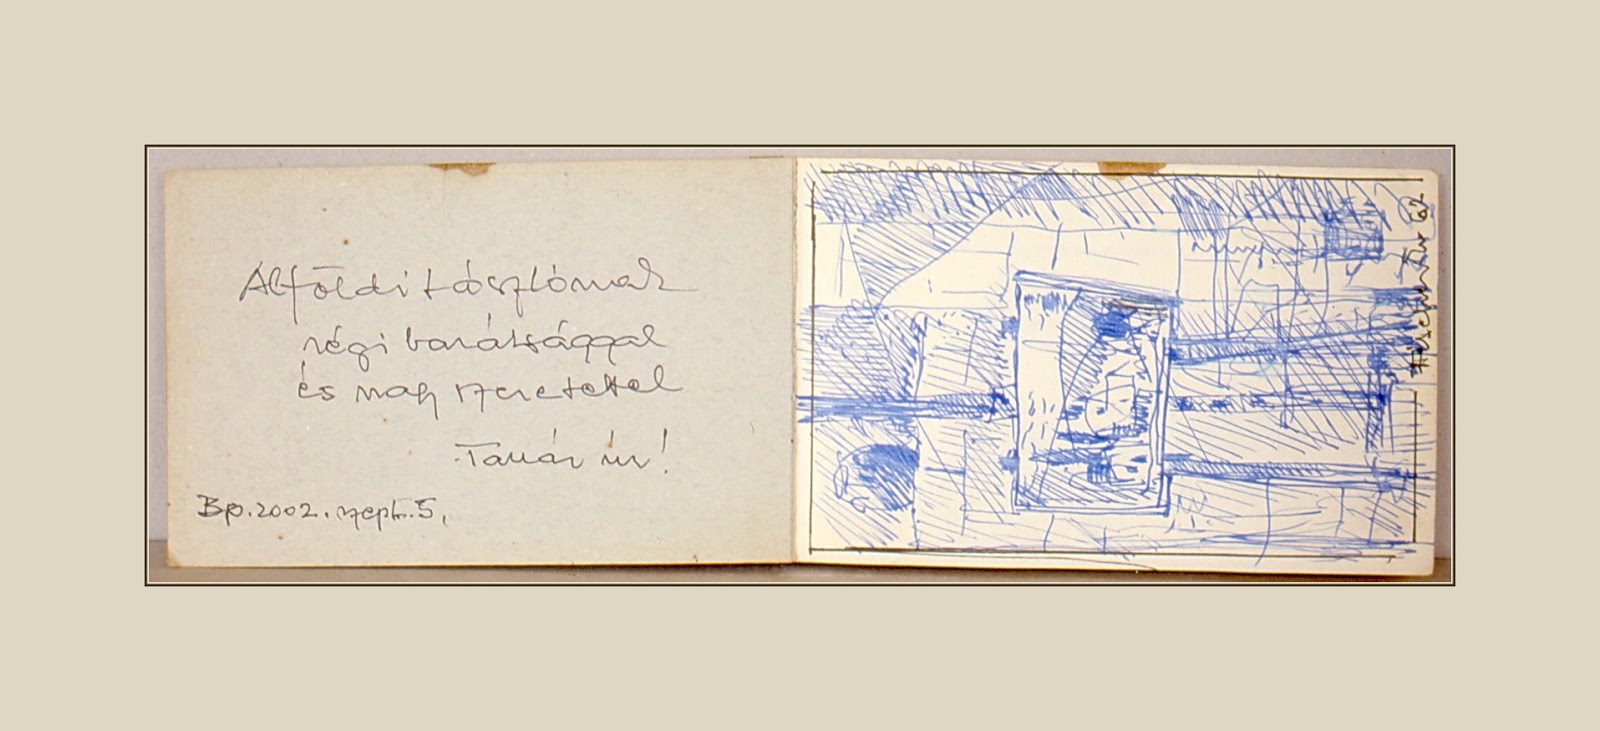 Alföldi Lászlónak
régi barátsággal
és nagy szeretettel
Tanár úr!
Bp. 2002. szept. 5,
62